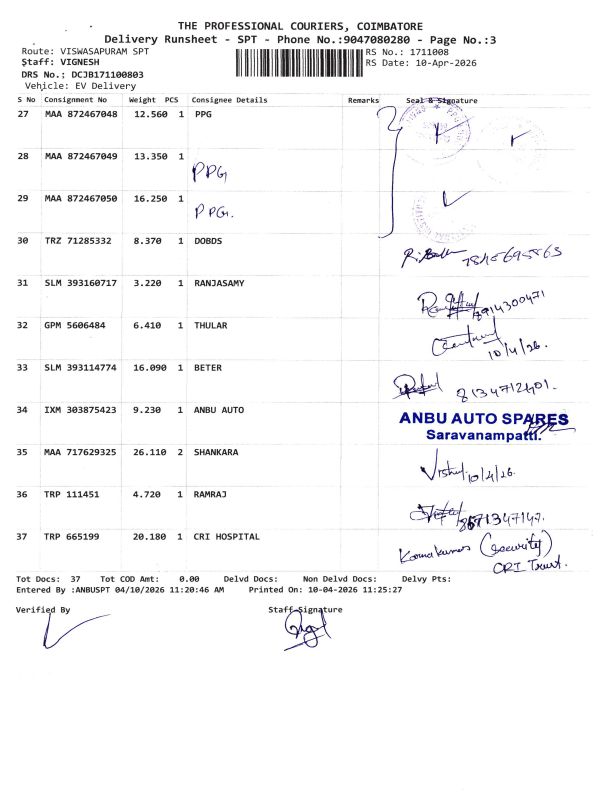 THE PROFESSIONAL COURIERS, COIMBATORE
Delivery Runsheet - SPT - Phone No.:9047080280 - Page No.:3
Route: VISWASAPURAM SPT RS No.: 1711008
Staff: VIGNESH RS Date: 10-Apr-2026
DRS No.: DCJB171100803
Vehicle: EV Delivery
S No Consignment No Weight PCS Consignee Details Remarks Seal & Signature
27 MAA 872467048 12.560 1 PPG
28 MAA 872467049 13.350 1 PPG
29 MAA 872467050 16.250 1 PPG.
30 TRZ 71285332 8.370 1 DOBDS
31 SLM 393160717 3.220 1 RANJASAMY 8914300471
32 GPM 5606484 6.410 1 THULAR 10/4/26.
33 SLM 393114774 16.090 1 BETER 8134712401.
34 IXM 303875423 9.230 1 ANBU AUTO ANBU AUTO SPARES
Saravanampatti.
35 MAA 717629325 26.110 2 SHANKARA 10/4/26.
36 TRP 111451 4.720 1 RAMRAJ 8671347147.
37 TRP 665199 20.180 1 CRI HOSPITAL (security)
CRI Trust.
Tot Docs: 37 Tot COD Amt: 0.00 Delvd Docs: Non Delvd Docs: Delvy Pts:
Entered By :ANBUSPT 04/10/2026 11:20:46 AM Printed On: 10-04-2026 11:25:27
Verified By Staff Signature